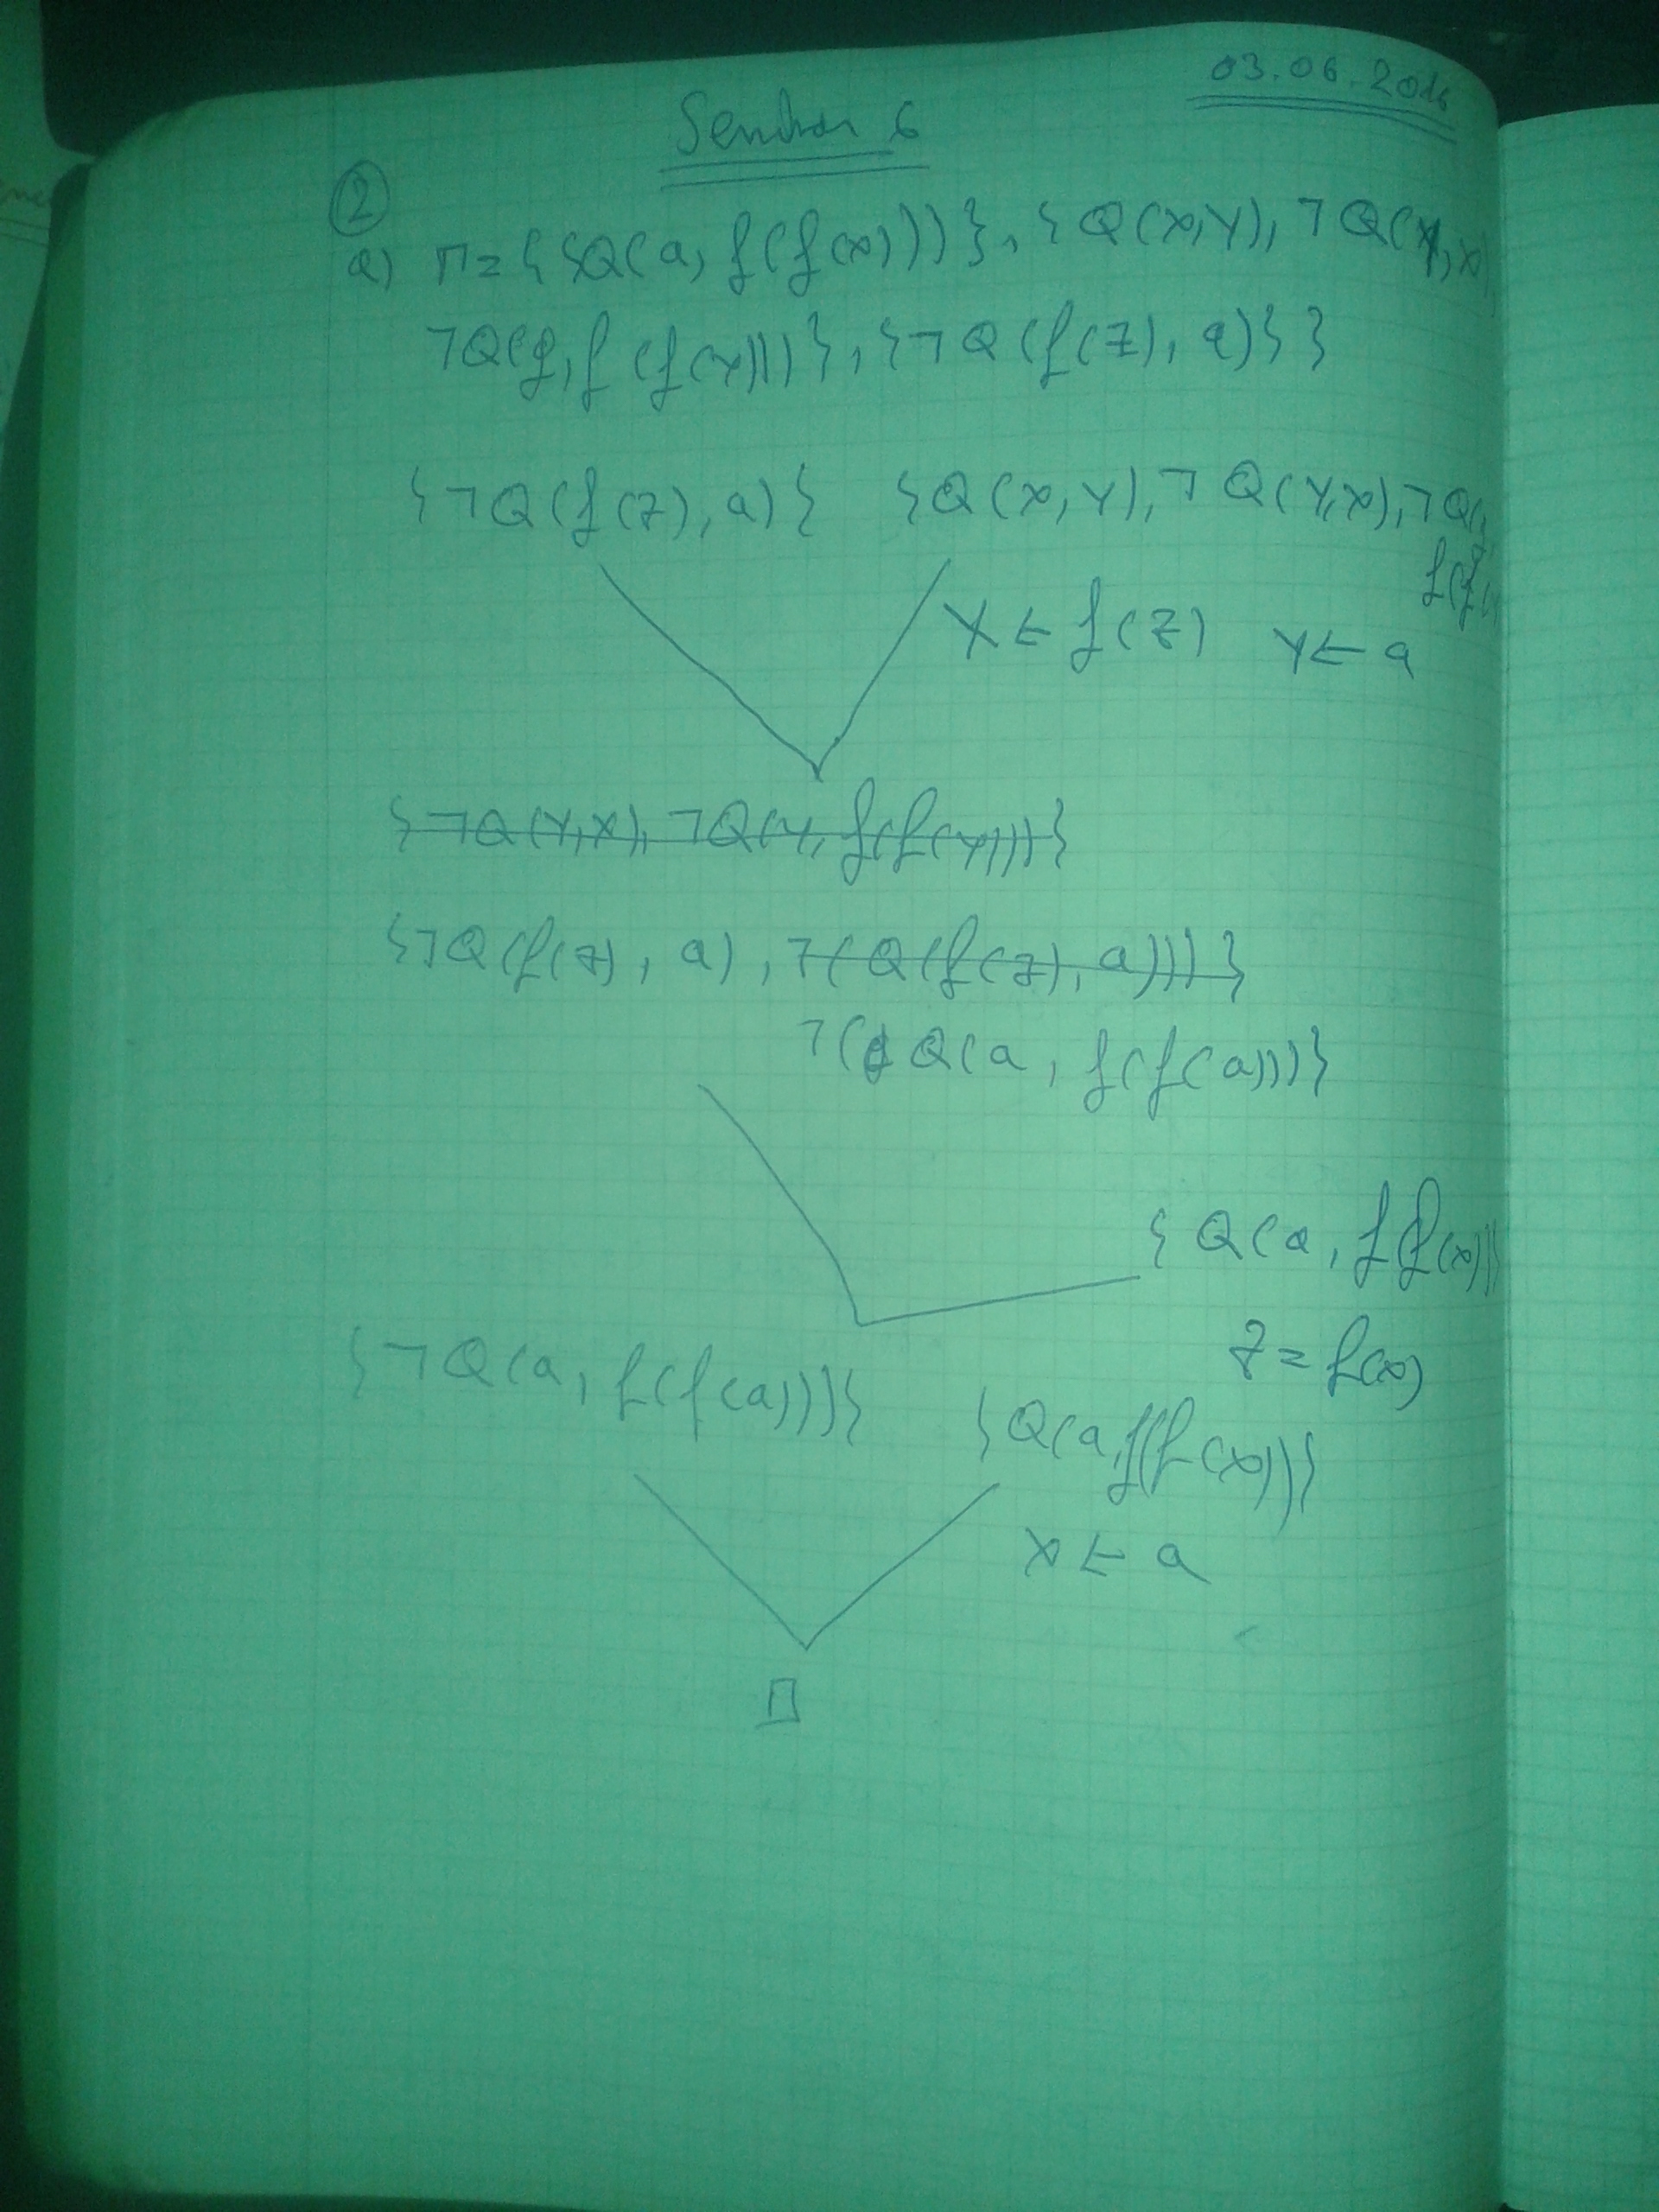 03.06.2016
Seminar 6
②
a) Γ = {{Q(a, f(f(x)))}, {Q(x,y), ¬Q(y,x),
¬Q(y, f(f(y)))}, {¬Q(f(z), a)}}
{¬Q(f(z), a)} {Q(x,y), ¬Q(y,x), ¬Q(
f(f(
x ← f(z) y ← a
{¬Q(y,x), ¬Q(y, f(f(y)))}
{¬Q(f(z), a), ¬(Q(f(z), a)))}
¬(Q(a, f(f(a)))}
{Q(a, f(f(x)))
z = f(x)
{¬Q(a, f(f(a)))}
{Q(a, f(f(x)))}
x ← a
□